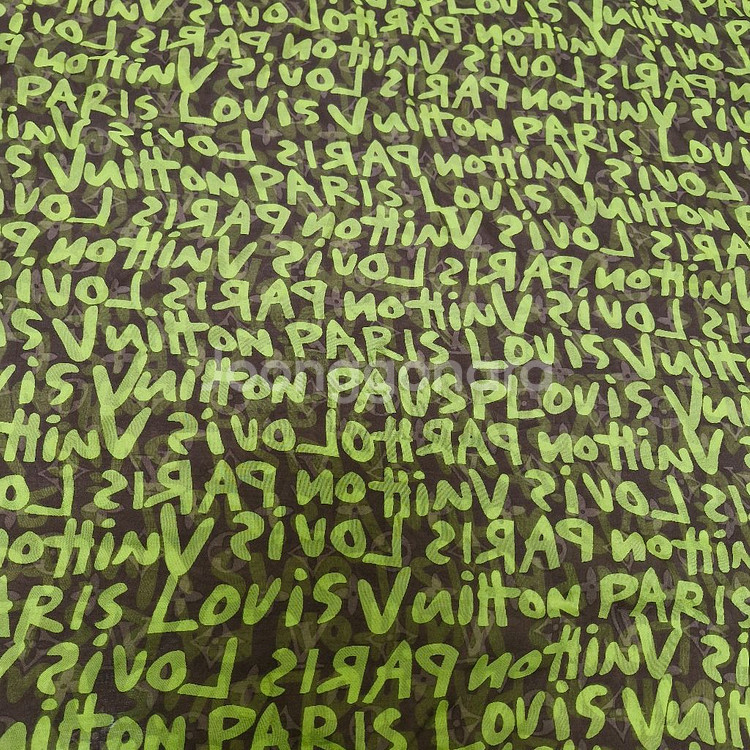 PARIS Vuitton Louis PARIS Vuitton
Vuitton Louis PARIS Vuitton Louis
PARIS Louis Vuitton PARIS Lou
Vuitton Louis PARIS Vuitton Louis
s Vuitton PARIS Louis Vuitton
Louis PARIS Vuitton Louis PARIS
Vuitton Louis PARIS Vuitton
Louis PARIS Vuitton Louis
ouis Vuitton PARIS Louis Vuitton
is Vuitton PARIS Louis Vui
Vuitton Louis PARIS Vuitton
Lo PARIS Vuitton Louis
Vuitton Louis PARIS Vuitton
ARIS Louis Vuitton PARIS
Louis PARIS Vuitton
uitton PARIS Louis Vuitton
Joonggonara